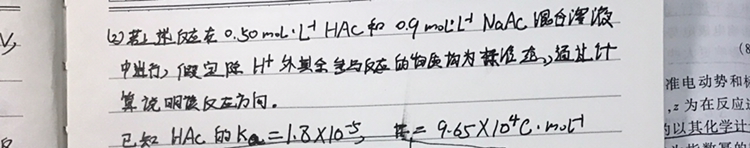 (2) 若上述反应在 0.50 mol·L⁻¹ HAc 和 0.9 mol·L⁻¹ NaAc 混合溶液
中进行，假定除 H⁺ 外其余参与反应的物质均为标准态，通过计
算说明该反应方向。
已知 HAc 的 Ka = 1.8×10⁻⁵， F = 9.65×10⁴ C·mol⁻¹
准电动势和标
，z 为在反应
以其化学计